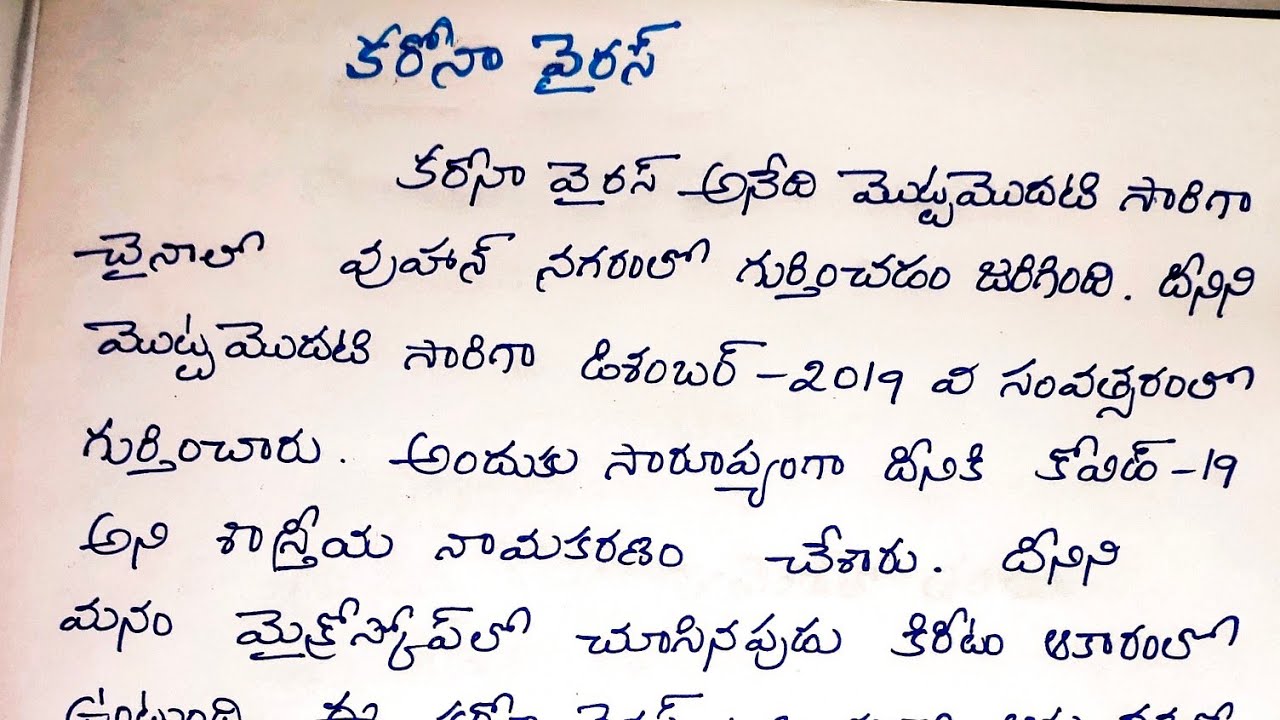 కరోనా వైరస్
కరోనా వైరస్ అనేది మొట్టమొదటి సారిగా
చైనాలో వుహాన్ నగరంలో గుర్తించడం జరిగింది. దీనిని
మొట్టమొదటి సారిగా డిశంబర్ -2019 వ సంవత్సరంలో
గుర్తించారు. అందుకు సారూప్యంగా దీనికి కోవిడ్-19
అని శాస్త్రీయ నామకరణం చేశారు. దీనిని
మనం మైక్రోస్కోప్‌లో చూసినపుడు కిరీటం ఆకారంలో
ఉంటుంది. ఈ కరోనా వైరస్